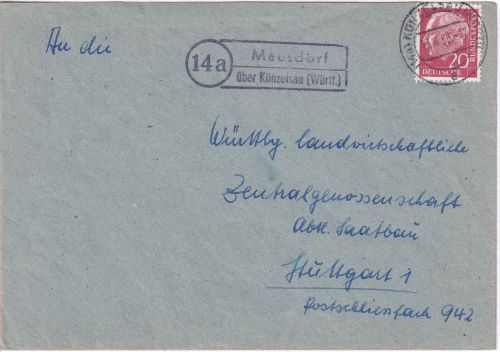 An die
14a
Mausdorf
über Künzelsau (Württ.)
20
DEUTSCHE
BUNDESPOST
Württbg. landwirtschaftliche
Zentralgenossenschaft
Abtl. Saatbau
Stuttgart 1
Postschliessfach 942